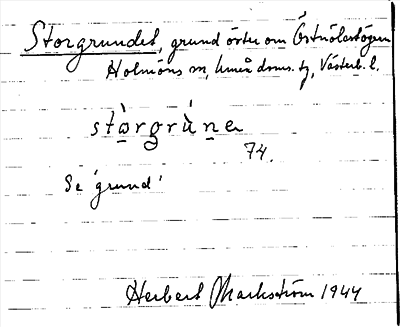 Storgrundet, grund öster om Östnölashögen
Holmöns sn, Umeå doms. tg, Västerb. l.
stòrgrùne
74.
Se 'grund'
Herbert Markström 1944